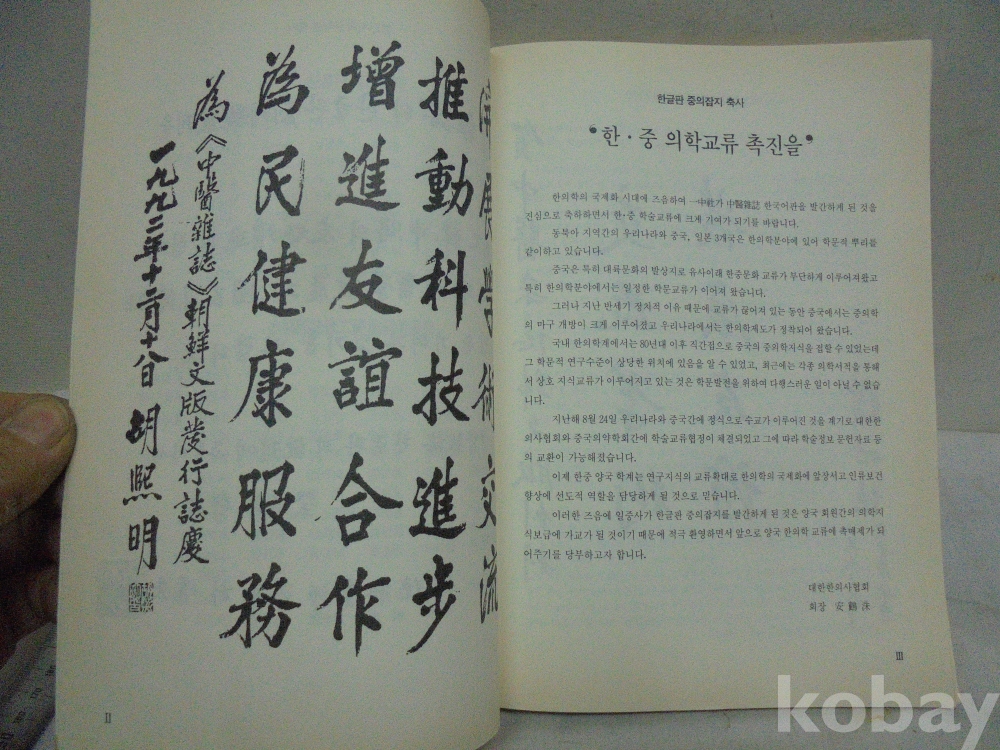 開展學術交流
推動科技進步
增進友誼合作
為民健康服務
為《中醫雜誌》朝鮮文版發行誌慶
一九九二年十二月十八日 胡熙明
II
한글판 중의잡지 축사
한·중 의학교류 촉진을
한의학의 국제화 시대에 즈음하여 一中社가 中醫雜誌 한국어판을 발간하게 된 것을
진심으로 축하하면서 한·중 학술교류에 크게 기여가 되기를 바랍니다.
동북아 지역간의 우리나라와 중국, 일본 3개국은 한의학분야에 있어 학문적 뿌리를
같이하고 있습니다.
중국은 특히 대륙문화의 발상지로 유사이래 한중문화 교류가 부단하게 이루어져왔고
특히 한의학분야에서는 일정한 학문교류가 이어져 왔습니다.
그러나 지난 반세기 정치적 이유 때문에 교류가 끊어져 있는 동안 중국에서는 중의학
의 마구 개방이 크게 이루어졌고 우리나라에서는 한의학제도가 정착되어 왔습니다.
국내 한의학계에서는 80년대 이후 직간접으로 중국의 중의학지식을 접할 수 있었는데
그 학문적 연구수준이 상당한 위치에 있음을 알 수 있었고, 최근에는 각종 의학서적을 통해
서 상호 지식교류가 이루어지고 있는 것은 학문발전을 위하여 다행스러운 일이 아닐 수 없습
니다.
지난해 8월 24일 우리나라와 중국간에 정식으로 수교가 이루어진 것을 계기로 대한한
의사협회와 중국의약학회간에 학술교류협정이 체결되었고 그에 따라 학술정보 문헌자료 등
의 교환이 가능해졌습니다.
이제 한중 양국 학계는 연구지식의 교류확대로 한의학의 국제화에 앞장서고 인류보건
향상에 선도적 역할을 담당하게 될 것으로 믿습니다.
이러한 즈음에 일중사가 한글판 중의잡지를 발간하게 된 것은 양국 회원간의 의학지
식보급에 가교가 될 것이기 때문에 적극 환영하면서 앞으로 양국 한의학 교류에 촉매제가 되
어주기를 당부하고자 합니다.
대한한의사협회
회장 安鶴洙
III
kobay